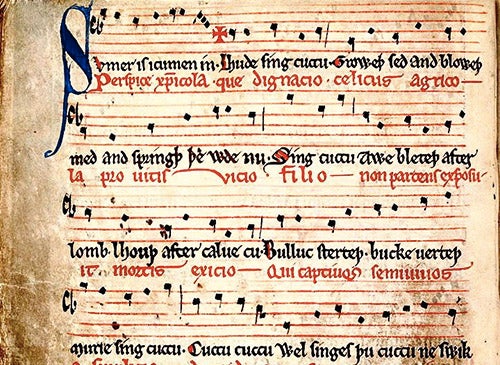 Svmer is icumen in. Lhude sing cuccu. Groweþ sed and bloweþ
Perspice xp̄icola. que dignacio. celicus agrico —
med and springþ þe wde nu. Sing cuccu Awe bleteþ after
la pro uitis vicio filio — non parcens exposu-
lomb. lhouþ after calue cu. Bulluc sterteþ. bucke uerteþ
it mortis exicio — Qui captiuos semiuiuos
murie sing cuccu. Cuccu cuccu Wel singes þu cuccu ne swik